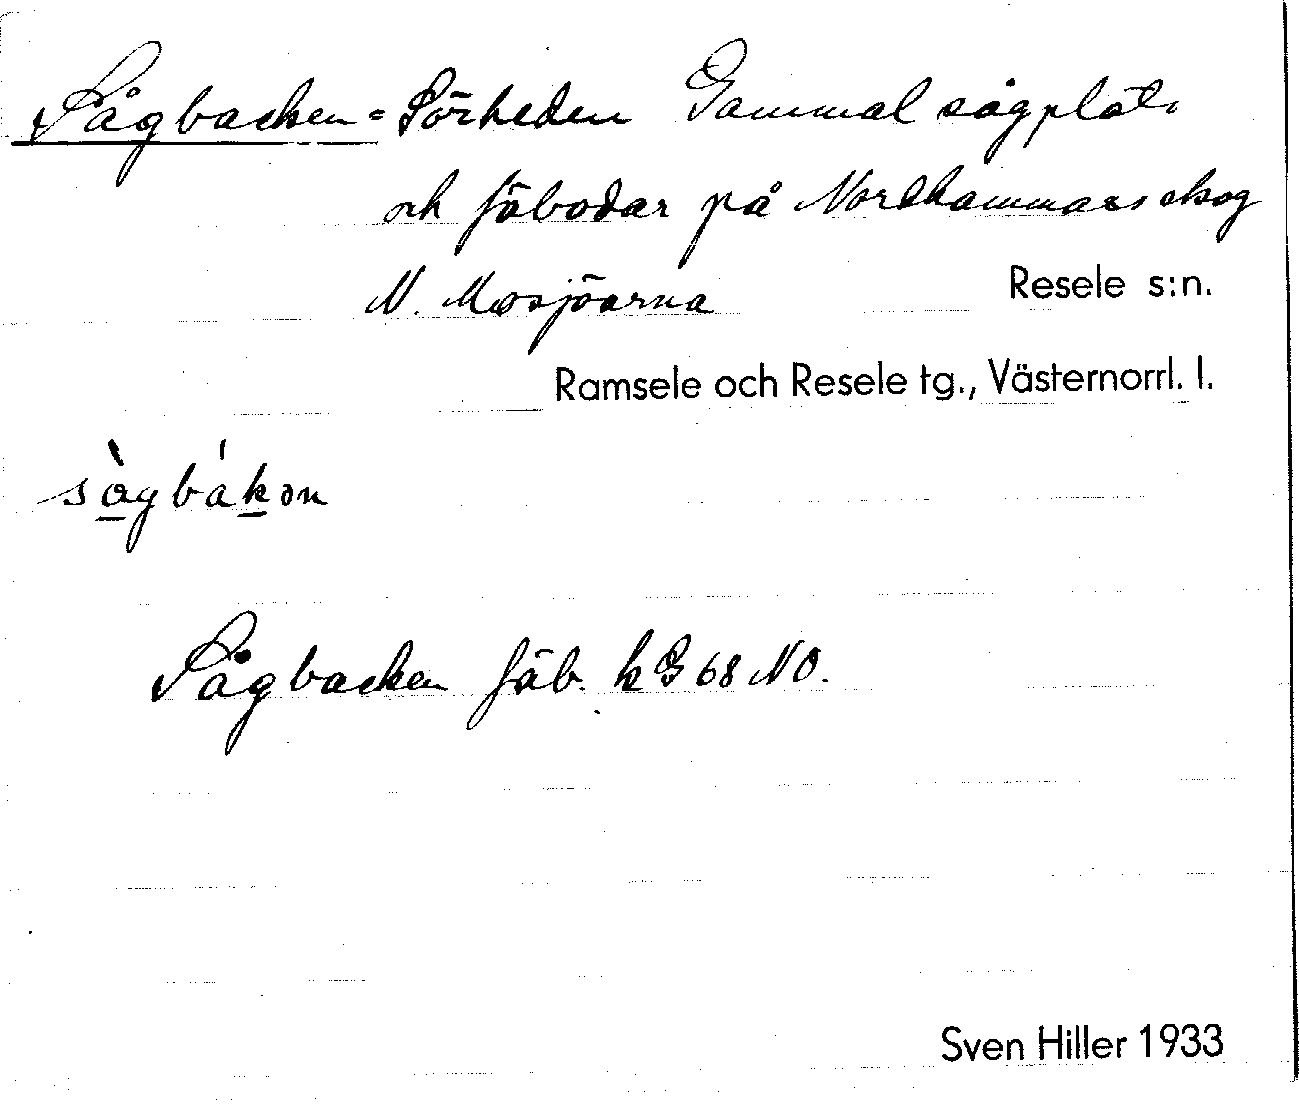 Sågbacken = Sörheden Gammal sågplats
och fäbodar på Nordhammars skog
N. Mosjöarna Resele s:n.
Ramsele och Resele tg., Västernorrl. l.
sàgbákən
Sågbacken fäb. k G 68 NO.
Sven Hiller 1933